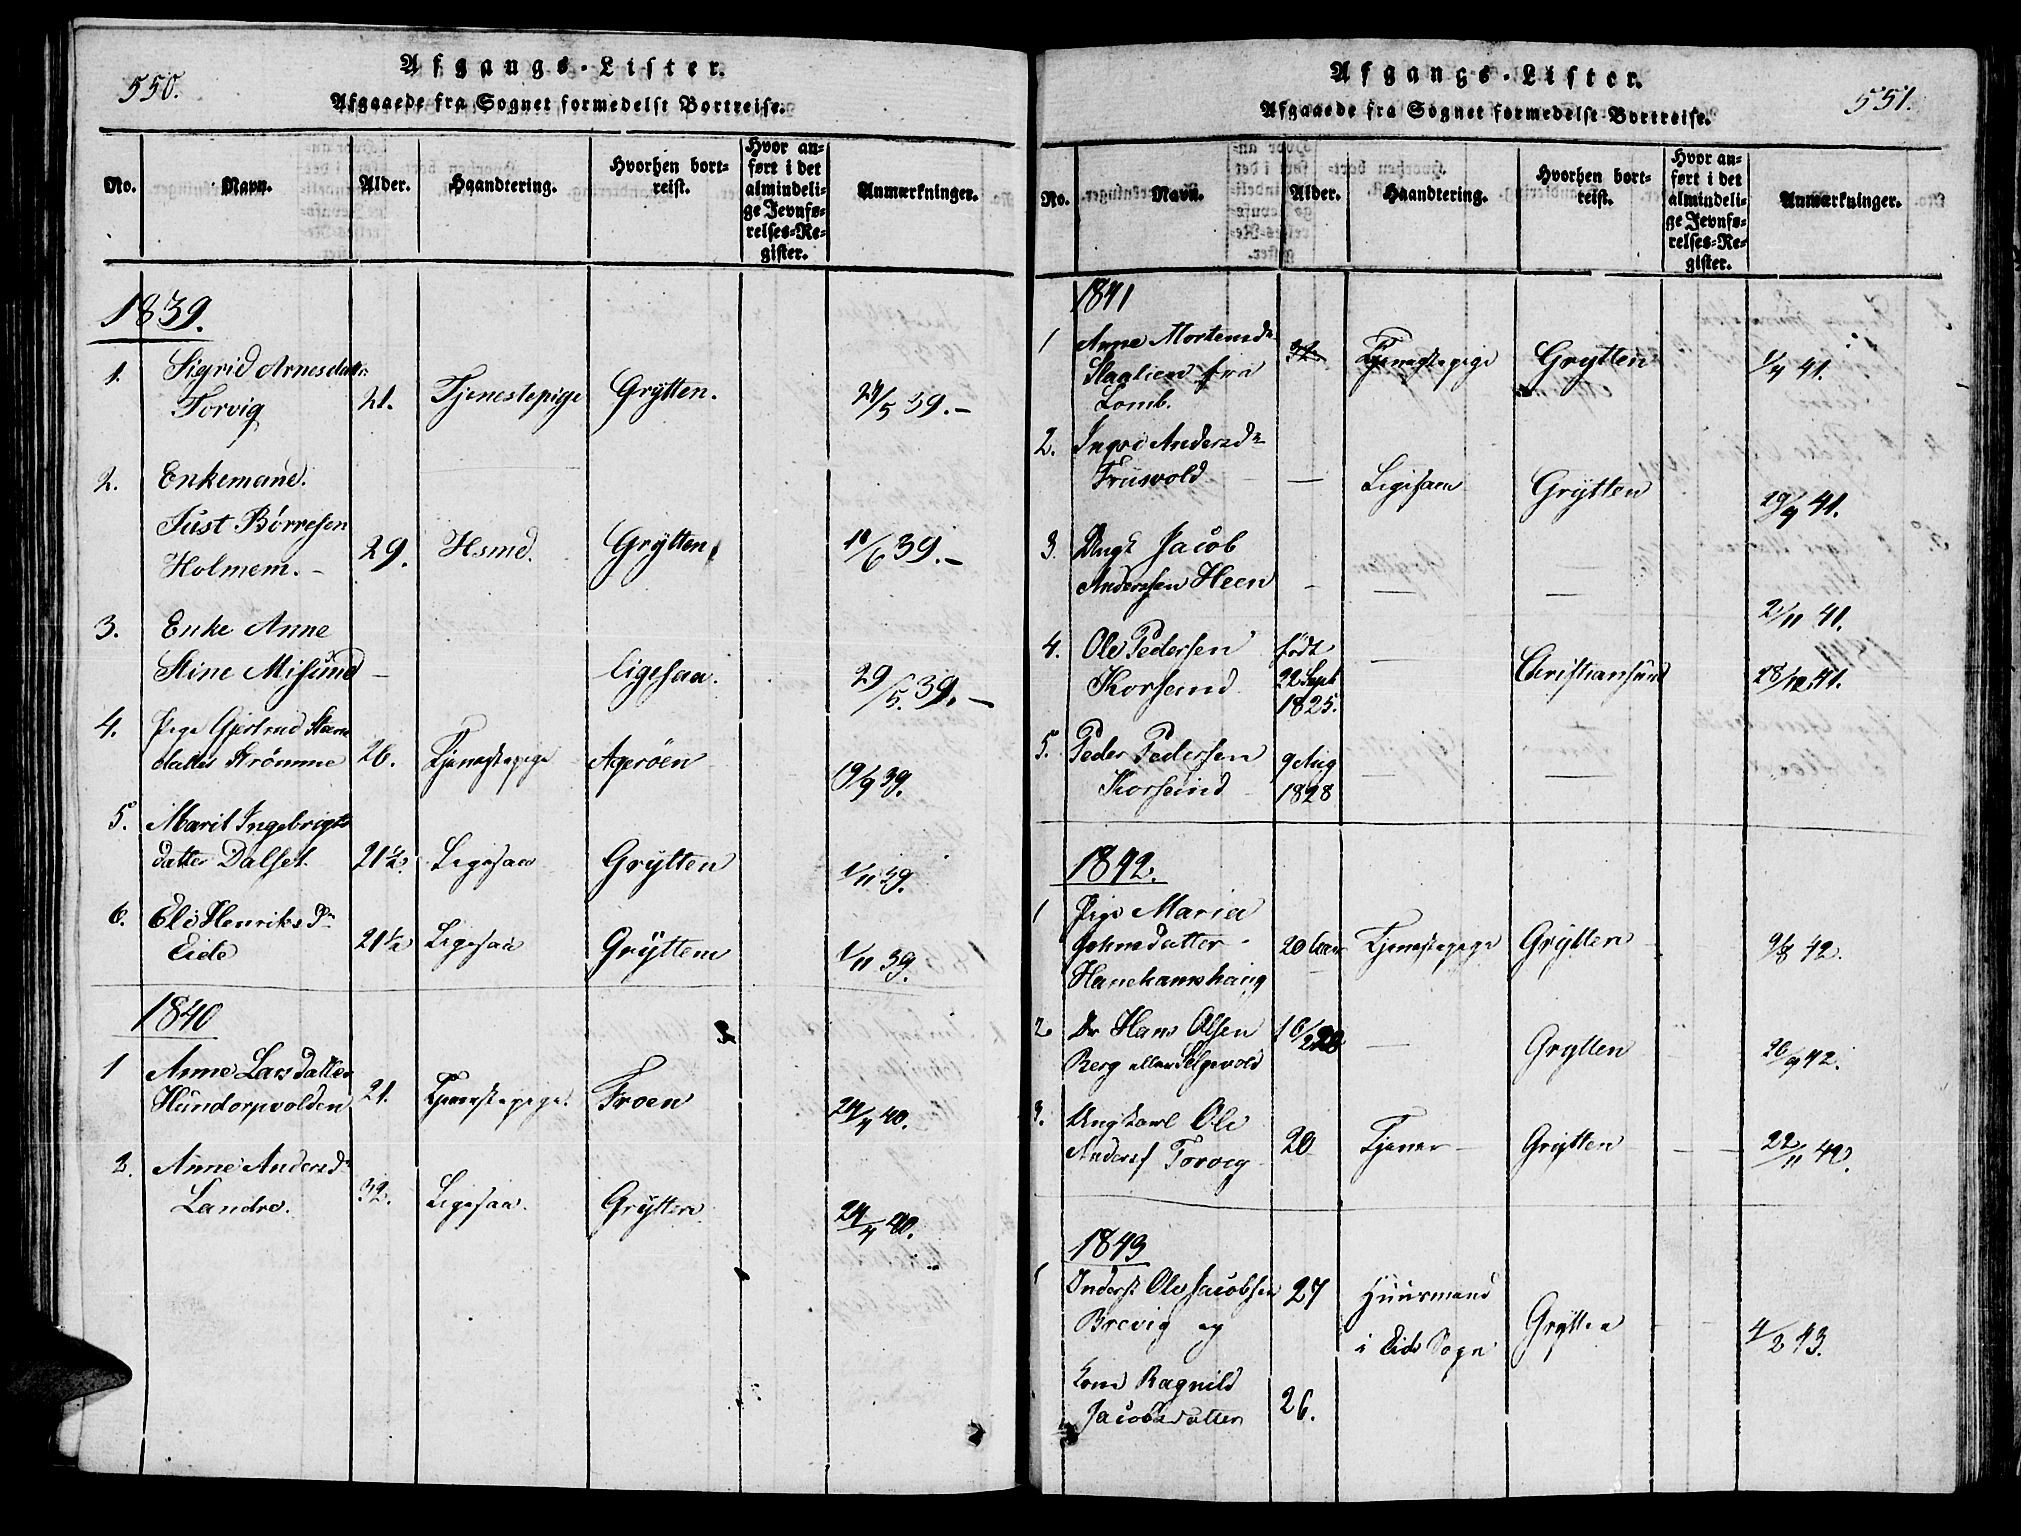 550.
Afgangs-Lister.
Afgaaede fra Sognet formedelst Bortreise.
No. Navn. Alder. Haandtering. Hvorhen bortreist. Hvor anført i det almindelige Jevnførelses-Register. Anmærkninger.
1839.
1. Sigrid Arnesdatter
Torvig 21. Tjenestepige Grytten. 24/5 39.-
2. Enkemand.
Just Børresen
Holmem.- 29. Hsmd. Grytten 18/6 39.-
3. Enke Anne
Stine Misund - Ligesaa. 29/5. 39.-
4. Pige Gjertrud
datter Strømme 26. Tjenestepige Agerøen 19/9 39.
5. Marit Ingebrigts
datter Dalset 21½. Ligesaa Grytten 1/11 39.
6. Eli Henriksdr
Eide 21½ Ligesaa Grytten 1/11 39.
1840
1 Anne Larsdatter
Hundorpvolden 21. Tjenestepige. Froen 24/4 40.
2. Anne Andersd.
Landre. 32. Ligesaa. Grytten. 24/4 40.
551.
Afgangs-Lister.
Afgaaede fra Sognet formedelst Bortreise.
No. Navn. Alder. Haandtering. Hvorhen bortreist. Hvor anført i det almindelige Jevnførelses-Register. Anmærkninger.
1841
1 Anne Mortensdr
Slaalien fra 32 Tjenestepige Grytten 1/4 41.
Lomb.
2. Ingri Andersdr
Friisvold - Ligesaa Grytten 29/4 41.
3. Ungk Jacob
Anderssen Heen - - - 2/11 41.
4. Ole Pedersen født
Korsund 22 Sept - Christiansund 28/12 41.
1825.
5. Peder Pedersen 9 Aug
Korsund 1828 - -
1842.
1 Pige Maria
Johnsdatter 20 Aar Tjenestepige Grytten 9/8 42.
Hanekamhaug
2. Dr Hans Olsen
Berg eller Selgevold - Grytten 26/9 42.
3. Ungkarl Ole
Anders. Torvig 20 Tjener - Grytten - - 22/11 42.
1843
1 Inderst Ole Jacobsen 27 Huusmand
Brevig og i Eids Sogn Grytten 4/2 43.
Kone Ragnild
Jacobsdatter 26.